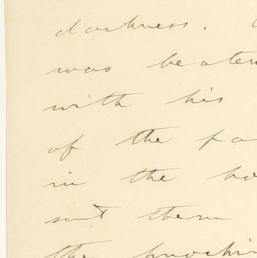 darkness.
was beaten
with his
of the
in the
sent them
the